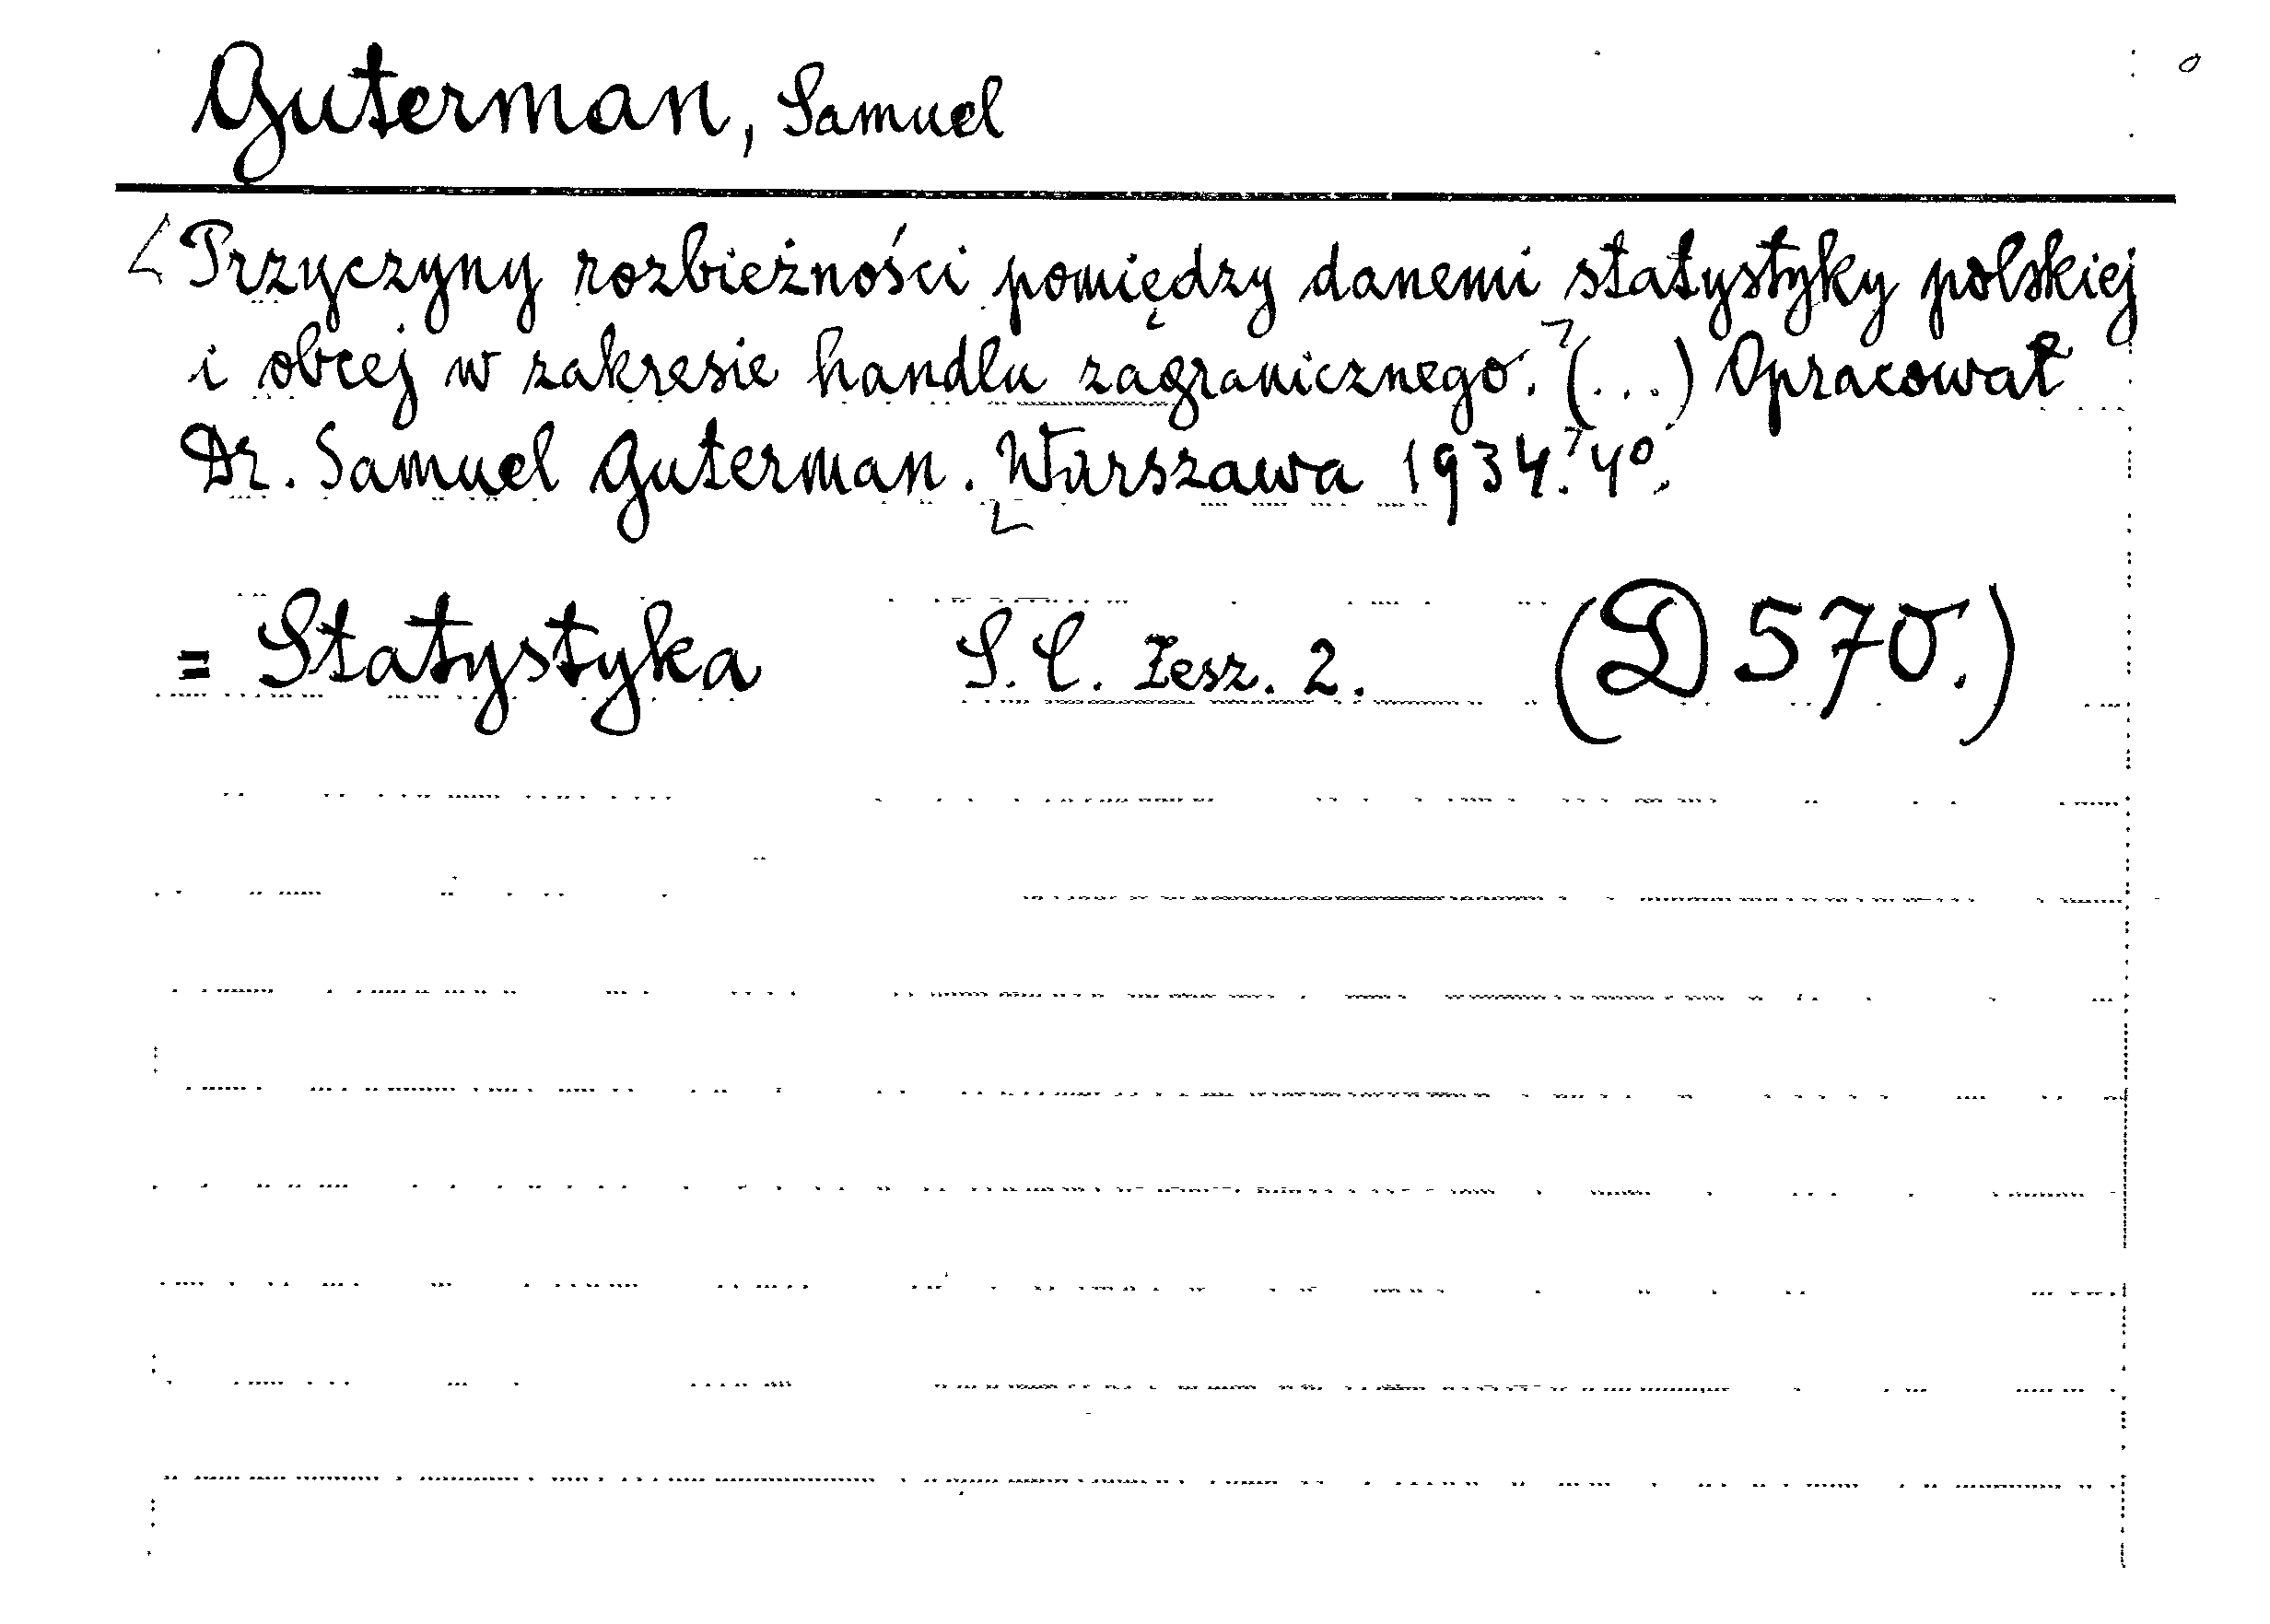 Guterman, Samuel
Przyczyny rozbieżności pomiędzy danemi statystyky polskiej
i obcej w zakresie handlu zagranicznego. (...) Opracował
Dr. Samuel Guterman. Warszawa 1934. 4°.
= Statystyka S. C. Zesz. 2. (D 570.)